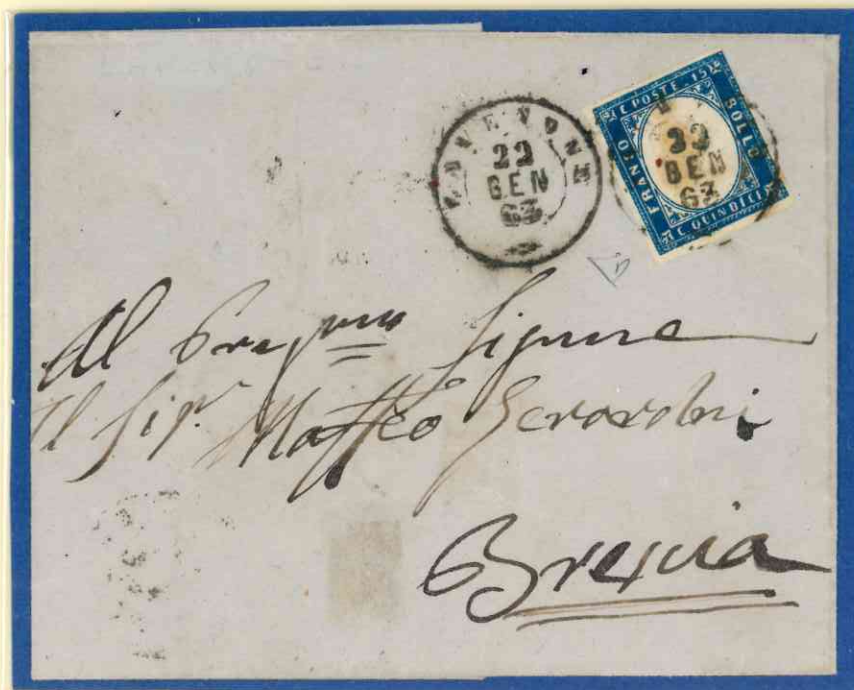 22
GEN
63
C. POSTE 15
BOLLO
FRANCO
C. QUINDICI
22
GEN
63
Al Preg.mo Signore
Il Sig.r Maffeo
Brescia